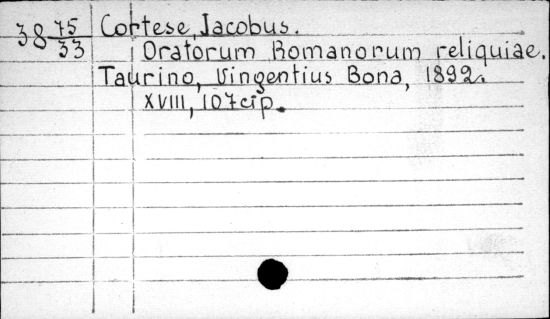 38 75/33 Cortese, Jacobus.
Oratorum Romanorum reliquiae.
Taurino, Vingentius Bona, 1892.
XVIII, 107 cip.